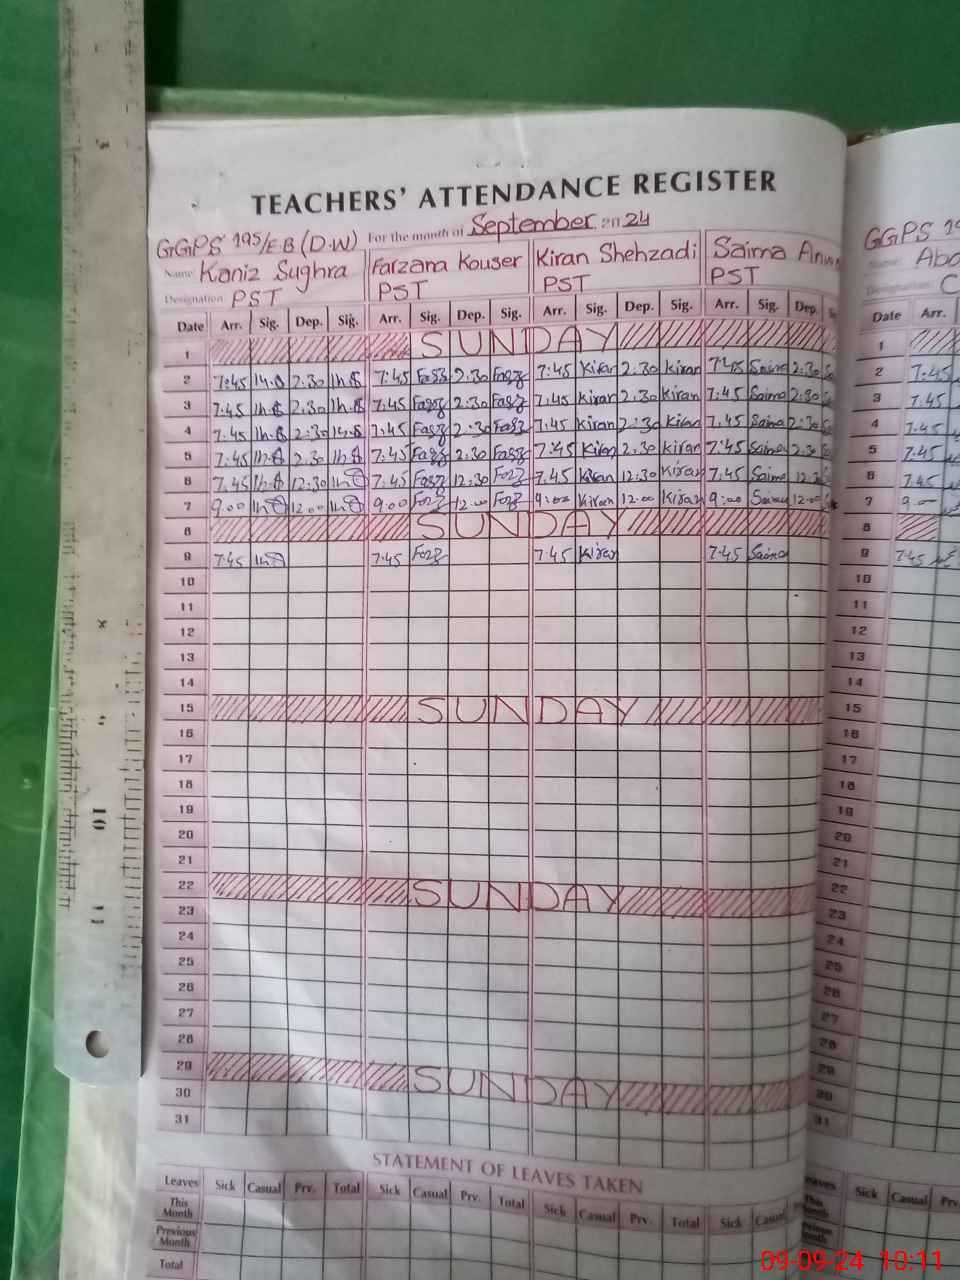 TEACHERS' ATTENDANCE REGISTER
GGPS 195/E.B (D.W) For the month of September 2024
Name: Kaniz Sughra Farzana Kouser Kiran Shehzadi Saima
Designation: PST PST PST PST
Date Arr. Sig. Dep. Sig. Arr. Sig. Dep. Sig. Arr. Sig. Dep. Sig. Arr. Sig. Dep.
1 SUNDAY
2 7:45 2:30 7:45 2:30 7:45 Kiran 2:30 Kiran 7:45 Saima 2:30
3 7:45 2:30 7:45 2:30 7:45 Kiran 2:30 Kiran 7:45 Saima 2:30
4 7:45 2:30 7:45 2:30 7:45 Kiran 2:30 Kiran 7:45 Saima 2:30
5 7:45 2:30 7:45 2:30 7:45 Kiran 2:30 Kiran 7:45 Saima 2:30
6 7:45 12:30 7:45 12:30 7:45 Kiran 12:30 Kiran 7:45 Saima
7 9:00 12:00 9:00 12:00 9:00 Kiran 12:00 Kiran 9:00 Saima 12:00
8 SUNDAY
9 7:45 7:45 7:45 Kiran 7:45 Saima
10
11
12
13
14
15 SUNDAY
16
17
18
19
20
21
22 SUNDAY
23
24
25
26
27
28
29 SUNDAY
30
31
STATEMENT OF LEAVES TAKEN
Leaves Sick Casual Prv. Total Sick Casual Prv. Total Sick Casual Prv. Total Sick
This Month
Previous Month
Total
GGPS
Name:
Designation:
Date Arr.
1
2 7:45
3 7.45
4 7.45
5 7.45
6 7.45
7 9
8
9 7:45
10
11
12
13
14
15
16
17
18
19
20
21
22
23
24
25
26
27
28
29
30
31
Sick Casual
09-09-24 10:11